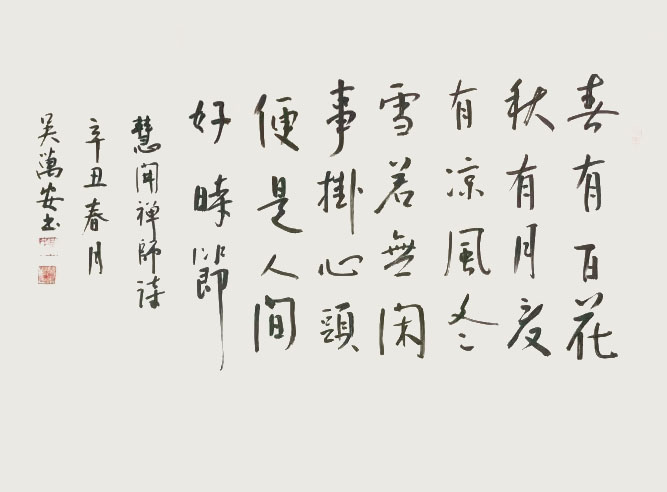 春有百花
秋有月夏
有凉風冬
雪若無閑
事掛心頭
便是人間
好時節
慧開禅師詩
辛丑春月
吴萬安书